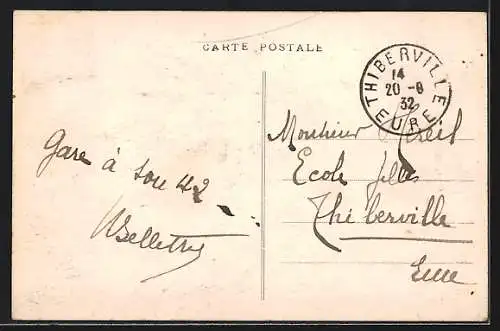 CARTE POSTALE
THIBERVILLE
14
20 - 8
32
EURE
Gare à 42
Monsieur
Ecole filles
Thiberville
Eure